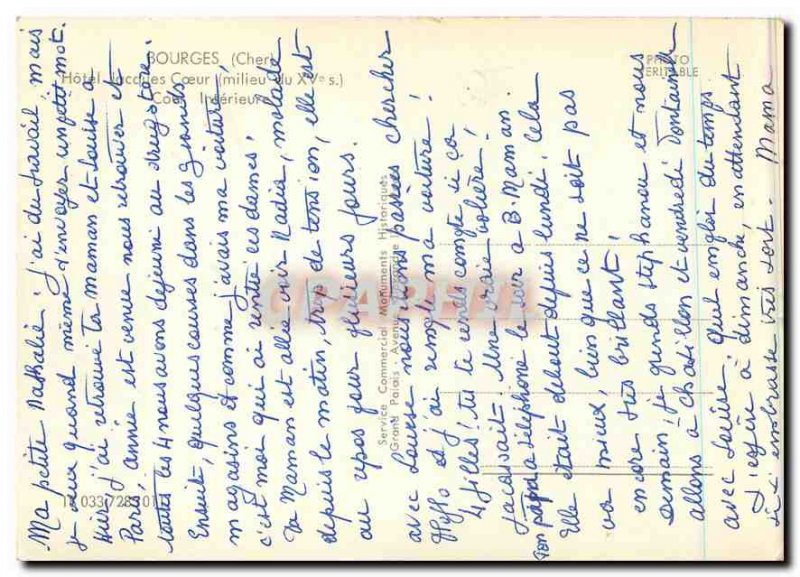 BOURGES (Cher)
Hôtel Jacques Cœur (milieu du XVe s.)
Cour Intérieure
PHOTO
VERITABLE
Service Commercial Monuments Historiques
Grand Palais - Avenue
CPARAMA
Ma petite Nathalie : j'ai du travail mais
je veux quand même t'envoyer un petit mot.
Hier j'ai retrouvé ta maman et Louise à
Paris, Annie est venue nous retrouver et
toutes les 4 nous avons déjeuné au drugstore.
Ensuite, quelques courses dans les grands
magasins et comme j'avais ma voiture
c'est moi qui ai rentré ces dames.
Ta Maman est allée voir Nadia, malade
depuis le matin, trop de tension, elle est
au repos pour plusieurs jours.
avec Louise nous sommes passées chercher
et j'ai rempli ma voiture !
4 filles, tu te rends compte si ça
jacassait. Une vraie volière !
Ton papa a téléphoné le soir à B. Maman.
Elle était debout depuis lundi, cela
va mieux, bien que ce ne soit pas
encore très brillant !
Demain, je prends Stéphanie et nous
allons à Chatillon et vendredi Fontainebleau
avec Louise, quel emploi du temps
J'espère à dimanche, en attendant
je t'embrasse très fort. Mama